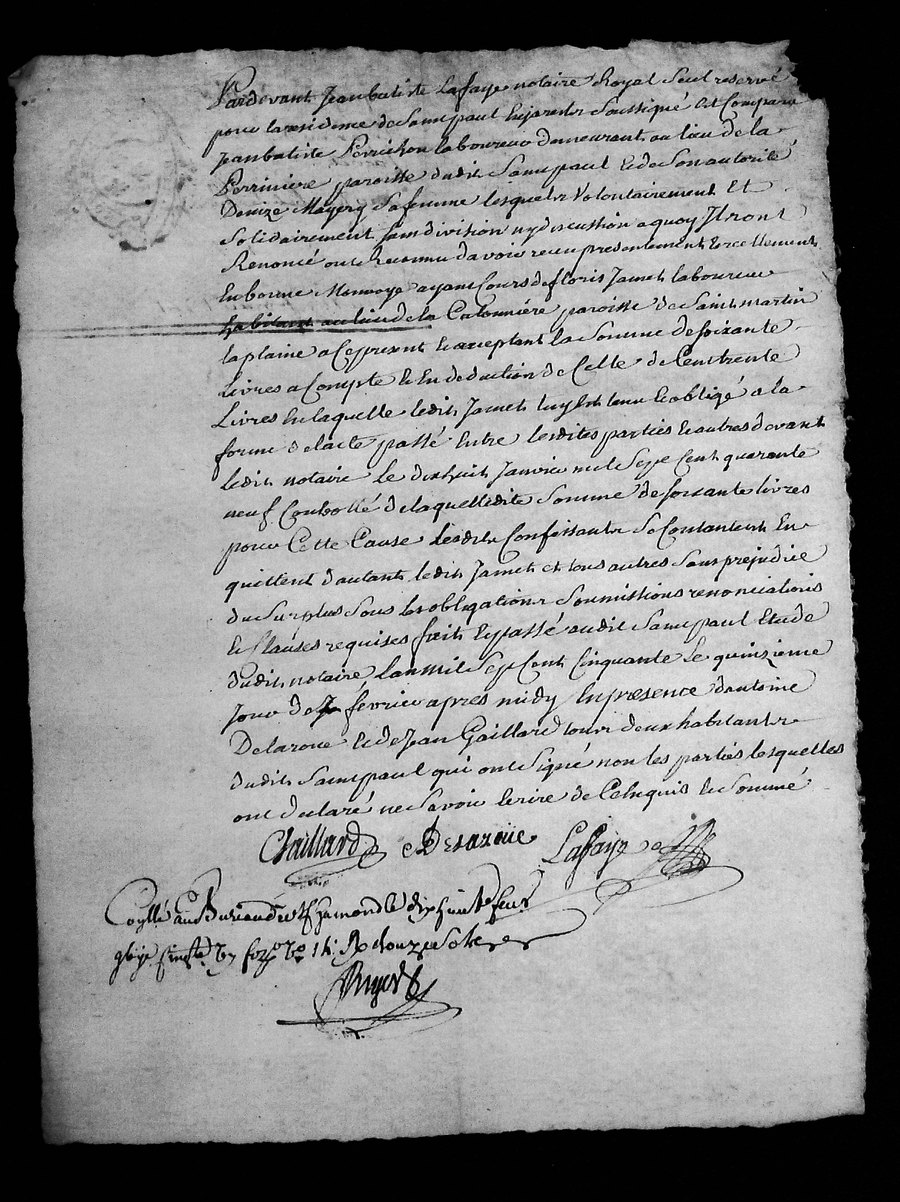 Pardevant Jeanbatiste Laffaye notaire Royal Seul reservé
pour la residence de Saint paul En jarest Soussigné Est Comparu
Jeanbatiste Perrichon laboureur demeurant au lieu de la
Perriniere paroisse dudit Saint paul Et de Son autorité
Denize Sa femme lesquels Volontairement Et
Solidairement Sans division ny discussion a quoy Ils ont
Renoncé ont Reconnu d'avoir receu presentement Et reellement
En bonne Monnoye ayant Cours de floris Jamet laboureur
habitant au lieu de la Catonnière paroisse de Saint martin
la plaine a Ce present Et acceptant la Somme de soixante
Livres a Compte Et En deduction de Celle de Cent trente
Livres En laquelle ledit Jamet luy Est tenu Et obligé a la
forme de lacte passé Entre lesdites parties Et autres devant
ledit notaire le dixhuit Janvier mil Sept Cent quarante
neuf Controllé de laquelle dite Somme de soixante livres
pour Cette Cause lesdits Confessants Se Contantent En
quittent d'autant ledit Jamet et tous autres Sans prejudice
du Surplus Sous les obligations Soumissions renonciations
Et Clauses requises fait Et passé audit Saint paul Etude
dudit notaire Lan Mil Sept Cent Cinquante le quinzieme
Jour de fevrier apres midy En presence d'antoine
Delaroue Et de Jean Gaillard tous deux habitants
dudit Saint paul qui ont Signé non les parties lesquelles
ont declaré ne Savoir Ecrire de Ce Enquis Et Sommé
Gaillard Delaroüe Laffaye
au Bureau de St Chamond le dix huit feur
Cinqte douze Sols